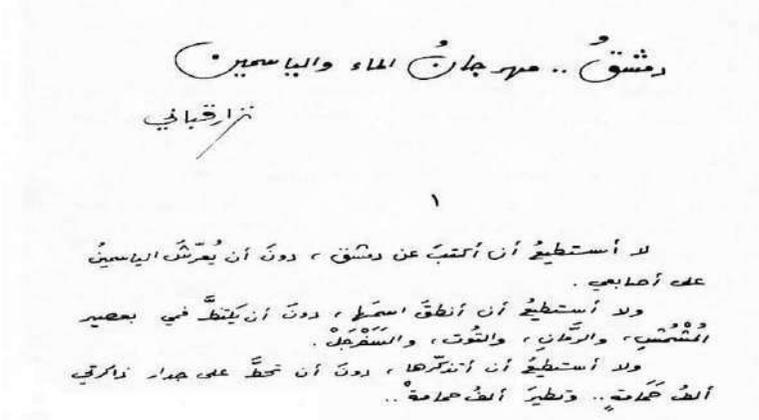 دمشقُ .. مهرجانُ الماء والياسمين
نزار قباني
١
لا أستطيعُ أن أكتبَ عن دمشق ، دونَ أن يُعرّشَ الياسمينُ
على أصابعي .
ولا أستطيعُ أن أنطقَ اسمَها ، دونَ أن يكتظَّ فمي بعصير
المُشْمُشِ ، والرمَّانِ ، والتُوت ، والسَفَرْجَلْ .
ولا أستطيعُ أن أتذكّرها ، دونَ أن تحطَّ على جدار ذاكرتي
ألفُ حَمَامةٍ .. وتطيرَ ألفُ حمامةْ ..